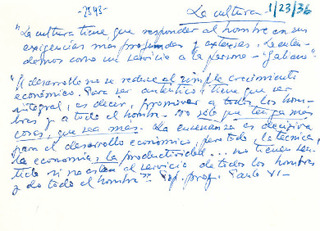 -2343-
La cultura 1/23/36
"La cultura tiene que responder al hombre en sus
exigencias mas profundas y extensas, la enten-
demos como un servicio a la persona -
"El desarrollo no se reduce al simple crecimiento
económico. Para ser auténtico tiene que ser
integral, es decir, promover a todos los hom-
bres y a todo el hombre - No solo que tenga más
cosas, que sea mas. La enseñanza es decisiva
para el desarrollo económico, pero todo, la técnica,
la economia, la productividad ... no tienen sen-
tido si no estan al servicio de todos los hombres
y de todo el hombre". Pop. prog. Paulo VI-